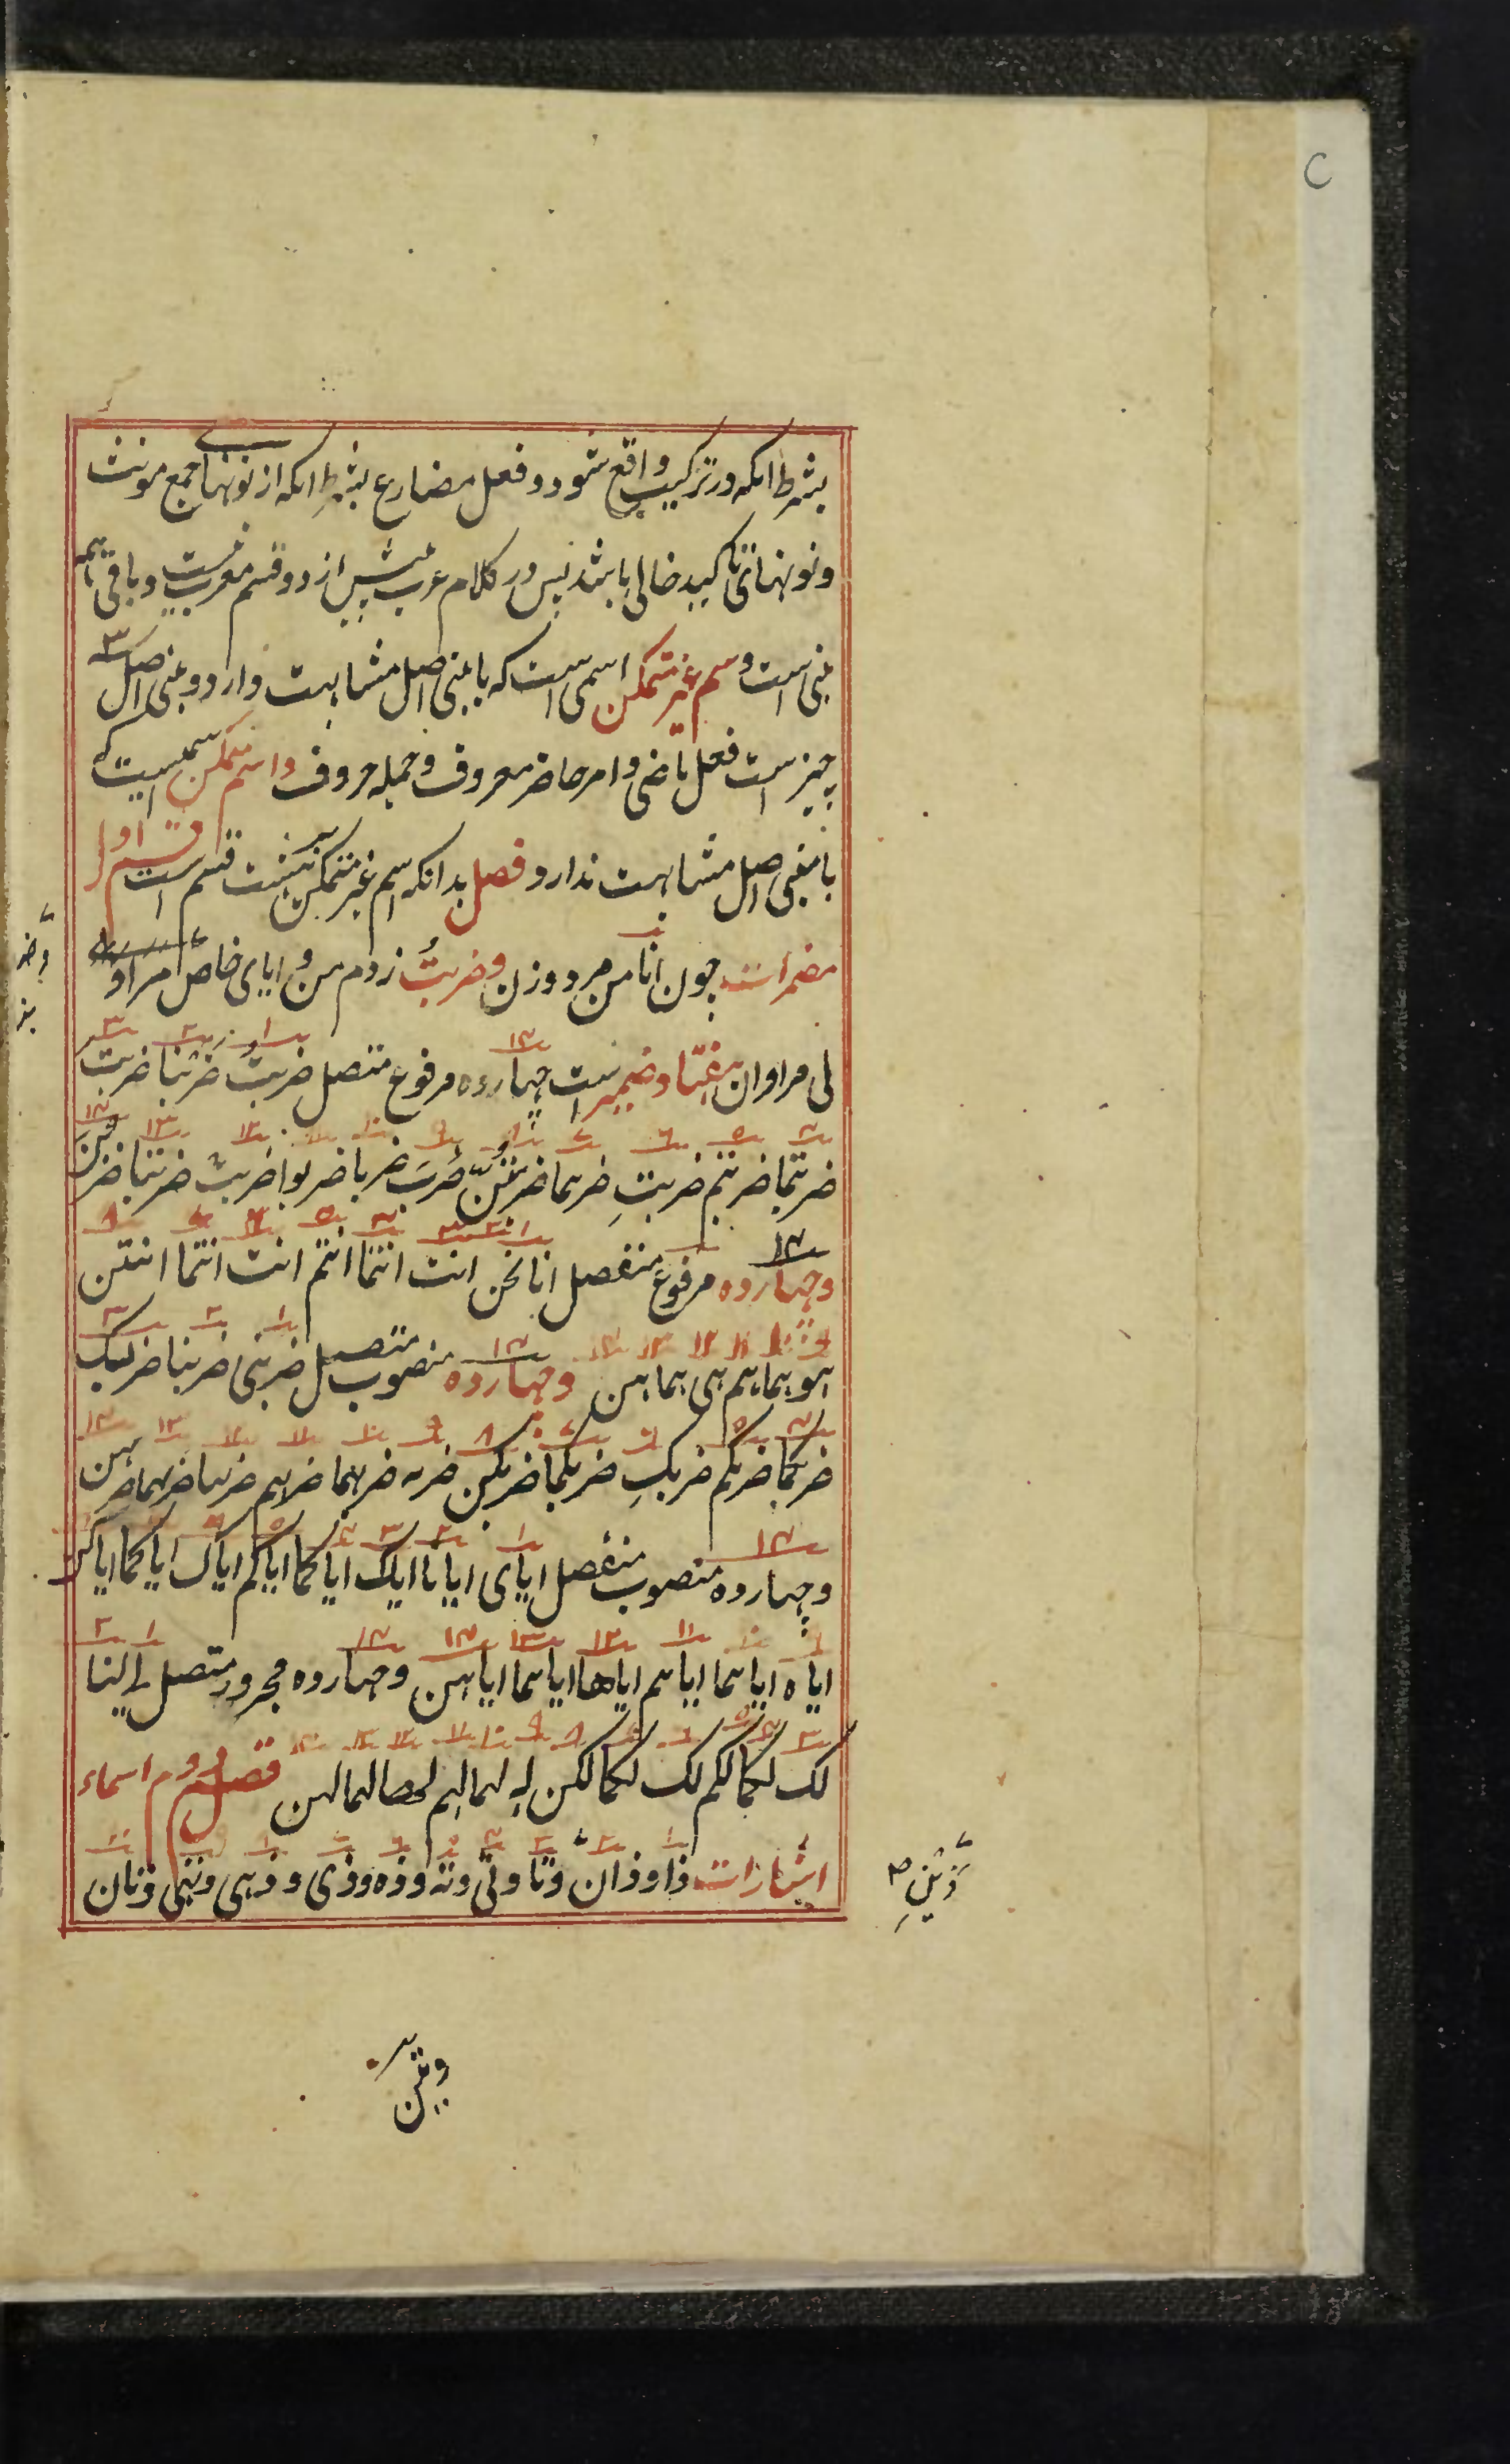 بشرط انکه در ترکیب واقع شود و فعل مضارع بشرط انکه از نونهای جمع مونث
و نونهای تاکید خالی باشد پس در کلام عرب بیش از دو قسم معرب نیست و باقی همه
مبنی است و اسم غیر متمکن اسمی است که با مبنی اصل مشابهت دارد و مبنی اصل ۳
چیز است فعل ماضی و امر حاضر معروف و جمله حروف و اسم متمکن اسمیست که
با مبنی اصل مشابهت ندارد فصل بدانکه اسم غیر متمکن هشت قسم است قسم اول
مضمرات چون انا من مرد و زن و ضربتُ زدم من و ایای خاص مرا و
لی مرا و ان هفتاد ضمیر است چهارده مرفوع متصل ضربتُ ضربنا ضربت
ضربتما ضربتم ضربتِ ضربتما ضربتنّ ضربَ ضربا ضربوا ضربت ضربتا ضربن
و چهارده مرفوع منفصل انا نحن انت انتما انتم انت انتما انتن
هو هما هم هی هما هن و چهارده منصوب متصل ضربنی ضربنا ضربک
ضربکما ضربکم ضربکِ ضربکما ضربکن ضربه ضربهما ضربهم ضربها ضربهما ضربهن
و چهارده منصوب منفصل ایای ایانا ایاک ایاکما ایاکم ایاک ایاکما ایاکن
ایاه ایاهما ایاهم ایاها ایاهما ایاهن و چهارده مجرور متصل لی لنا
لک لکما لکم لک لکما لکن له لهما لهم لها لهما لهن قسم دوم اسماء
اشارات ذا و ذان و تا و تی و ته و ذه و ذی و ذهی و تهی و تان
وتین